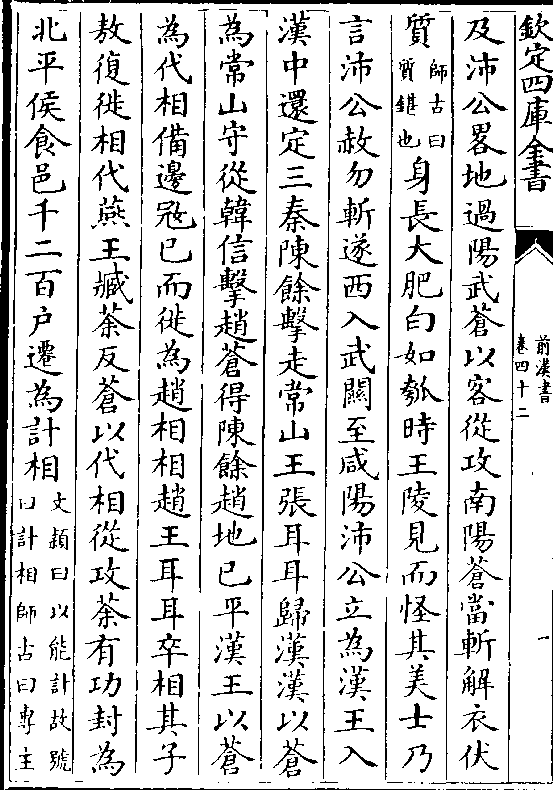 欽定四庫全書
前漢書
卷四十二
一
及沛公畧地過陽武蒼以客從攻南陽蒼當斬解衣伏
質師古曰質鍖也身長大肥白如瓠時王陵見而怪其美士乃
言沛公赦勿斬遂西入武關至咸陽沛公立為漢王入
漢中還定三秦陳餘擊走常山王張耳耳歸漢漢以蒼
為常山守從韓信擊趙蒼得陳餘趙地已平漢王以蒼
為代相備邊冦已而徙為趙相相趙王耳耳卒相其子
敖復徙相代燕王臧荼反蒼以代相從攻荼有功封為
北平侯食邑千二百户遷為計相文穎曰以能計故號曰計相師古曰專主